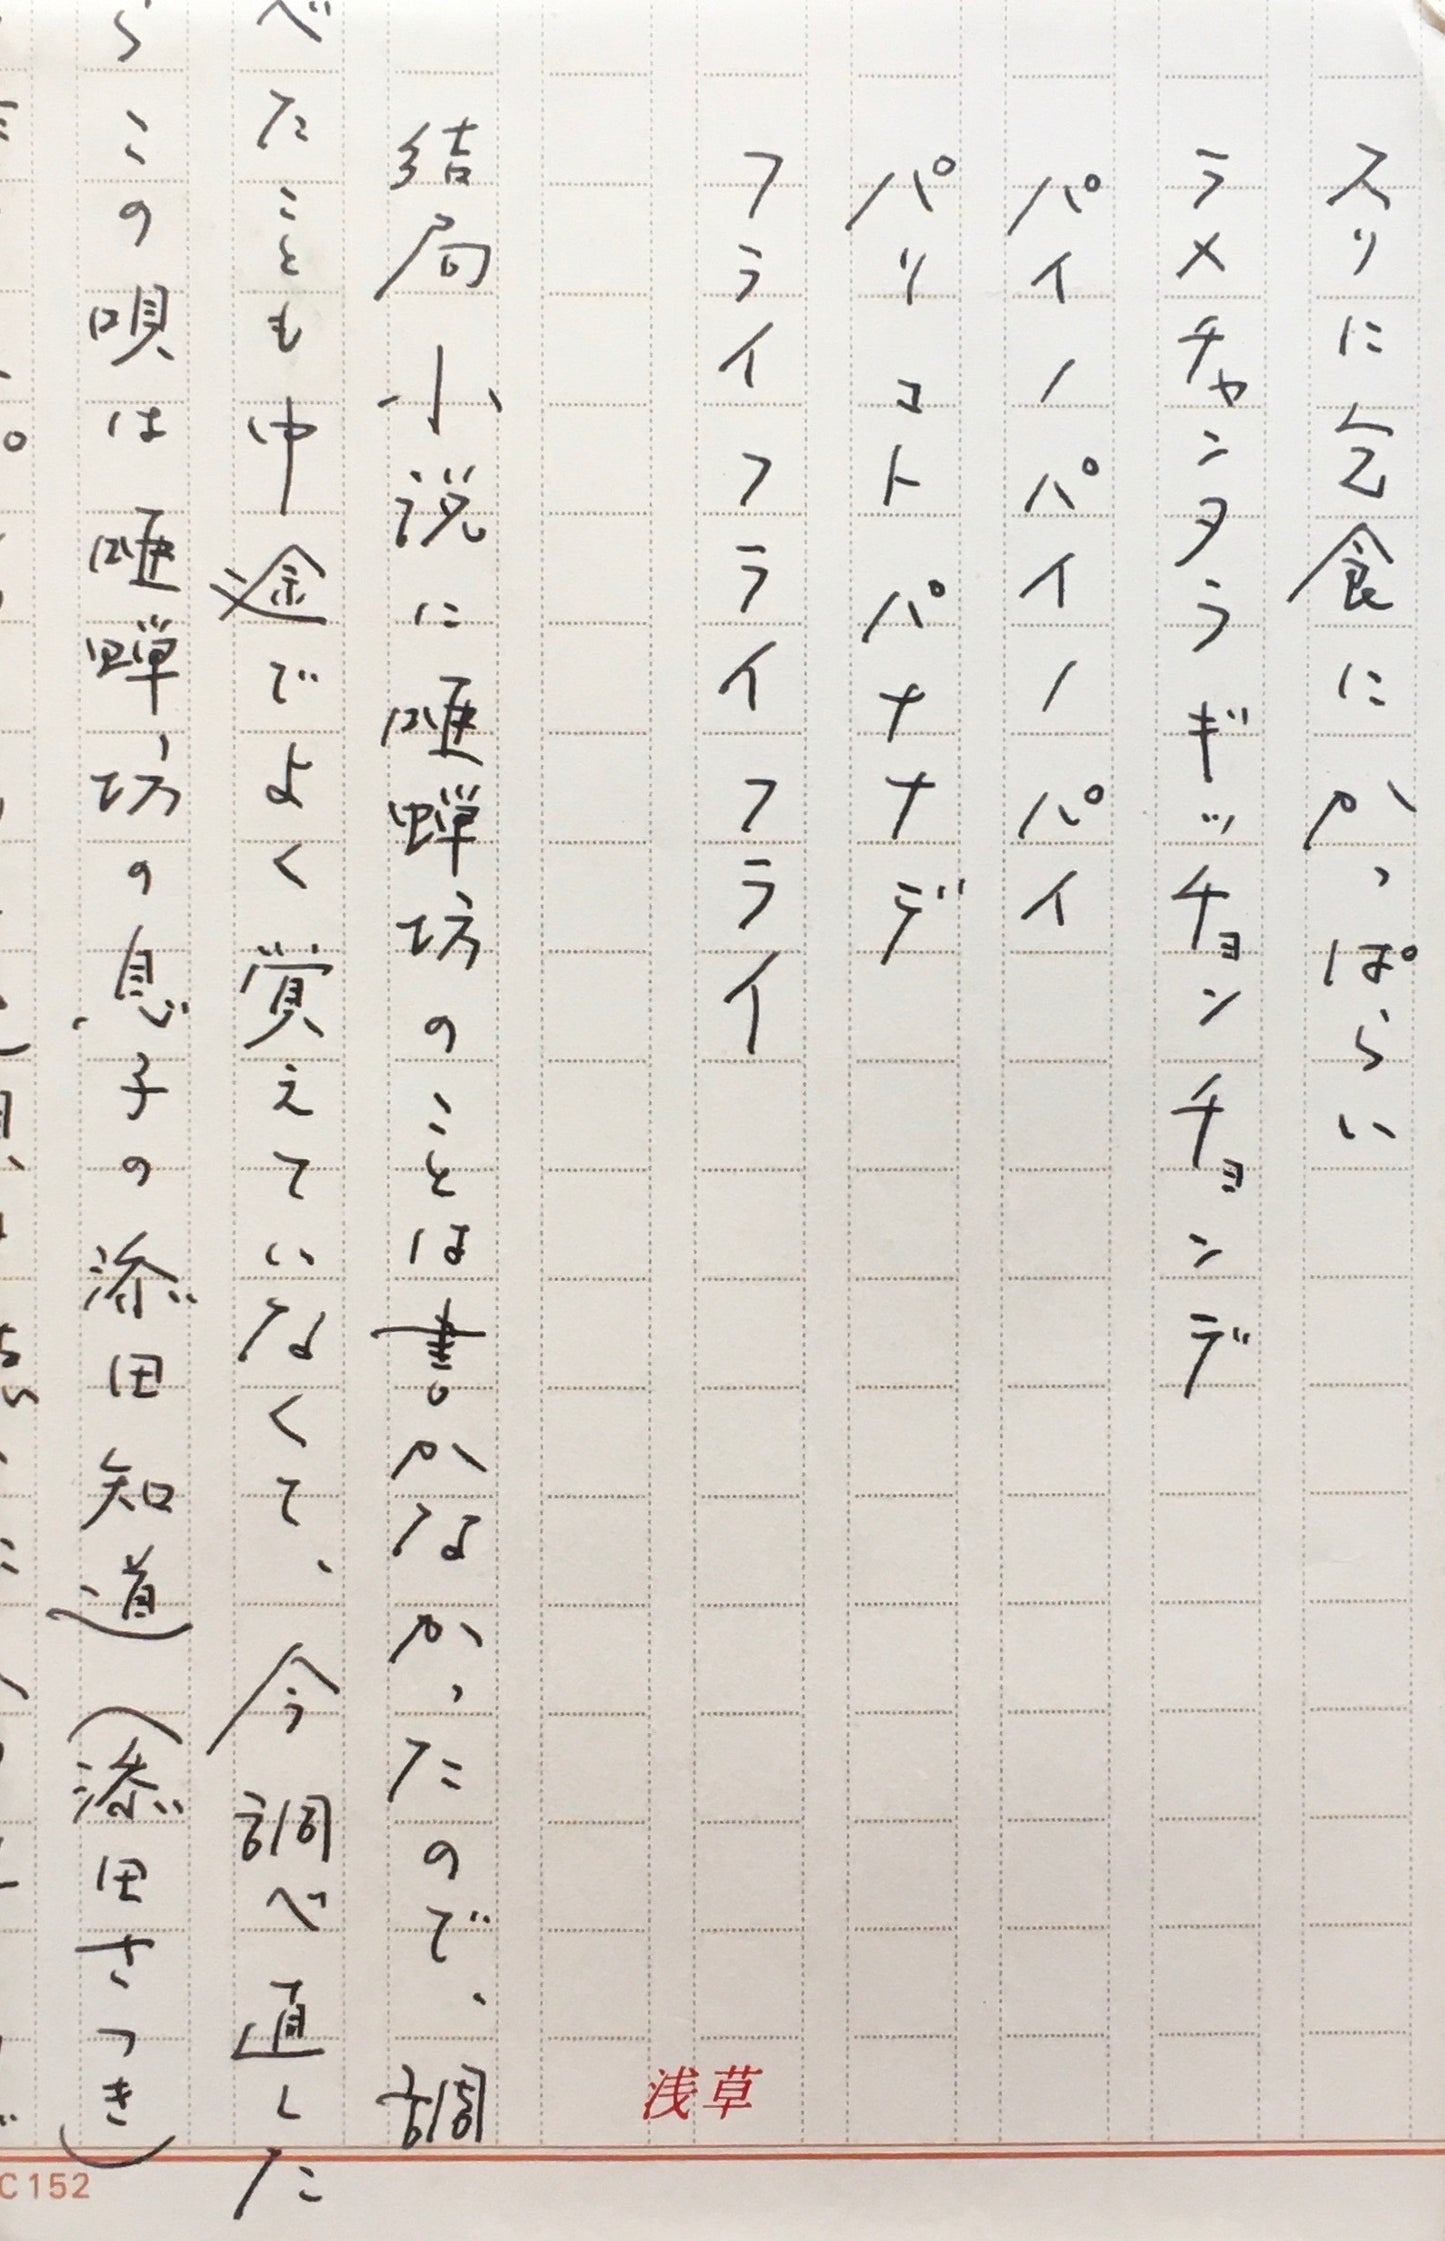 スリに乞食にかっぱらい
ラメチャンタラギッチョンチョンデ
パイノパイノパイ
パリコトパナナデ
フライフライフライ
結局小説に唖蝉坊のことは書かなかったので、調
べたことも中途でよく覚えていなくて、今調べ直した
らこの唄は唖蝉坊の息子の添田知道(添田さつき)
浅草
C152